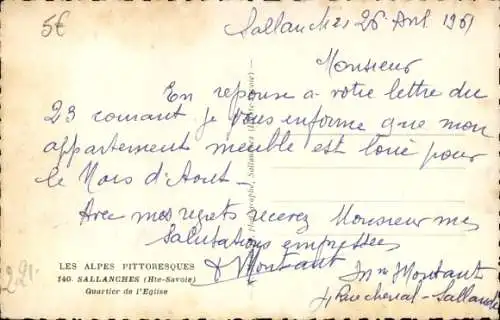 5€
Sallanches 26 Avl 1961
Monsieur
En reponse a votre lettre du
23 courant je vous informe que mon
appartement meublé est loué pour
le Mois d'Aout —
Avec mes regrets recevez Monsieur mes
Salutations empressées
Montant
Mme Montant
4 Rue chenal - Sallanche
LES ALPES PITTORESQUES
140. SALLANCHES (Hte-Savoie)
Quartier de l'Eglise
221.